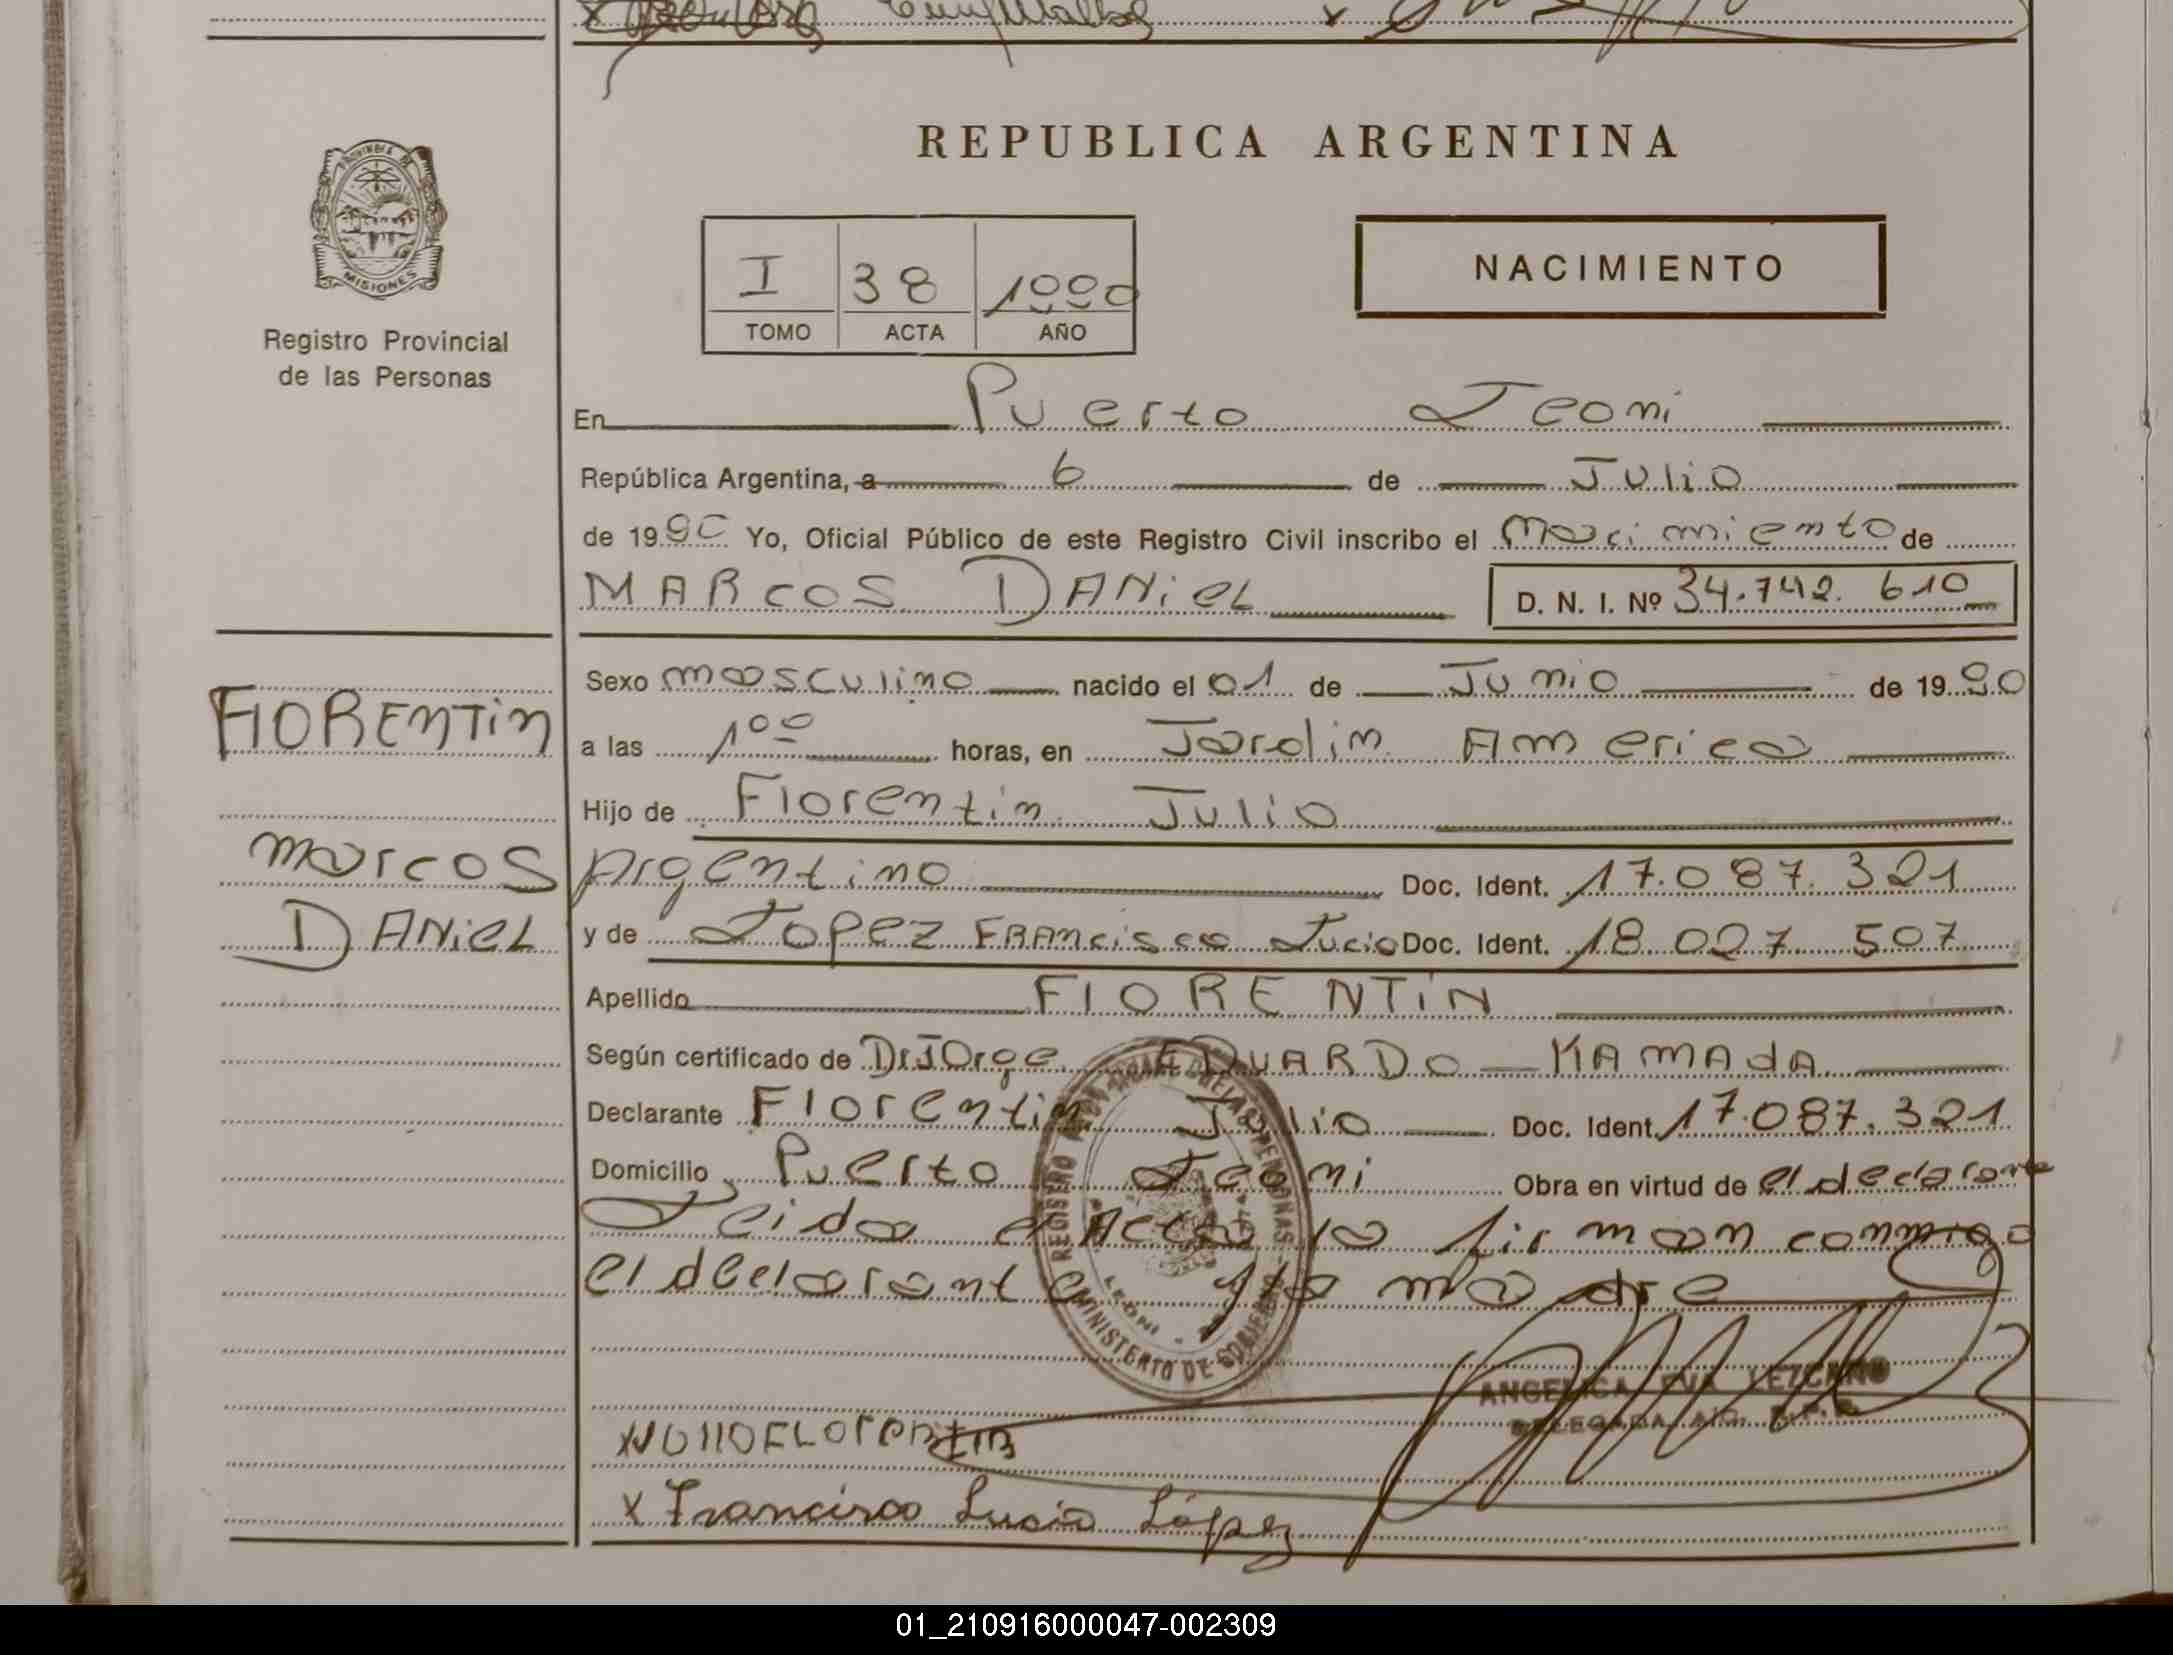 REPUBLICA ARGENTINA
PROVINCIA DE
MISIONES
Registro Provincial
de las Personas
I 38 1990
TOMO ACTA AÑO
NACIMIENTO
En Puerto Leoni
República Argentina, a 6 de Julio
de 1990 Yo, Oficial Público de este Registro Civil inscribo el Nacimiento de
MARCOS DANiEL D. N. I. Nº 34.742.610
Sexo masculino nacido el 01 de Junio de 1990
FIORENTiN
a las 1 00 horas, en Jardin America
Hijo de Florentin Julio
Marcos
Argentino Doc. Ident. 17.087.321
DANiEL
y de Lopez FRANcisca Lucia Doc. Ident. 18.027.507
Apellido FlORENTiN
Según certificado de Dr JOrge EDUARDO KAMAdA
Declarante Florentin Julio Doc. Ident. 17.087.321
Domicilio Puerto Leoni Obra en virtud de el declarante
Leida el Acta la firman conmigo
el declarante y la madre
MINISTERIO DE GOBIERNO
ANGELICA EVA LEZCANO
DELEGADA
x Francisca Lucia López
01_210916000047-002309